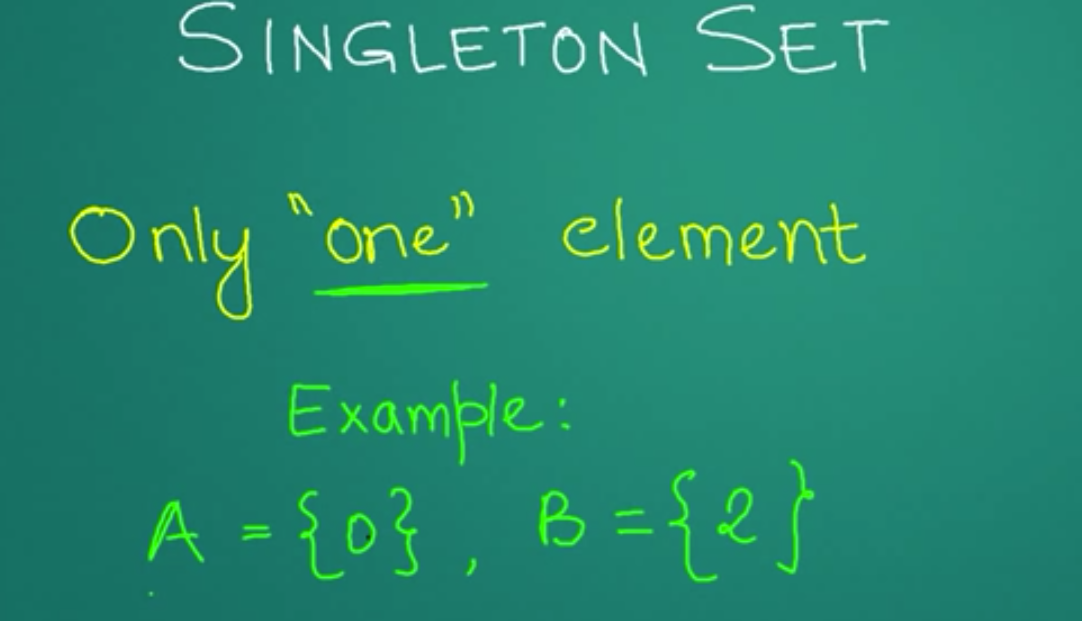 SINGLETON SET
Only "one" element
Example:
A = {0}, B = {2}